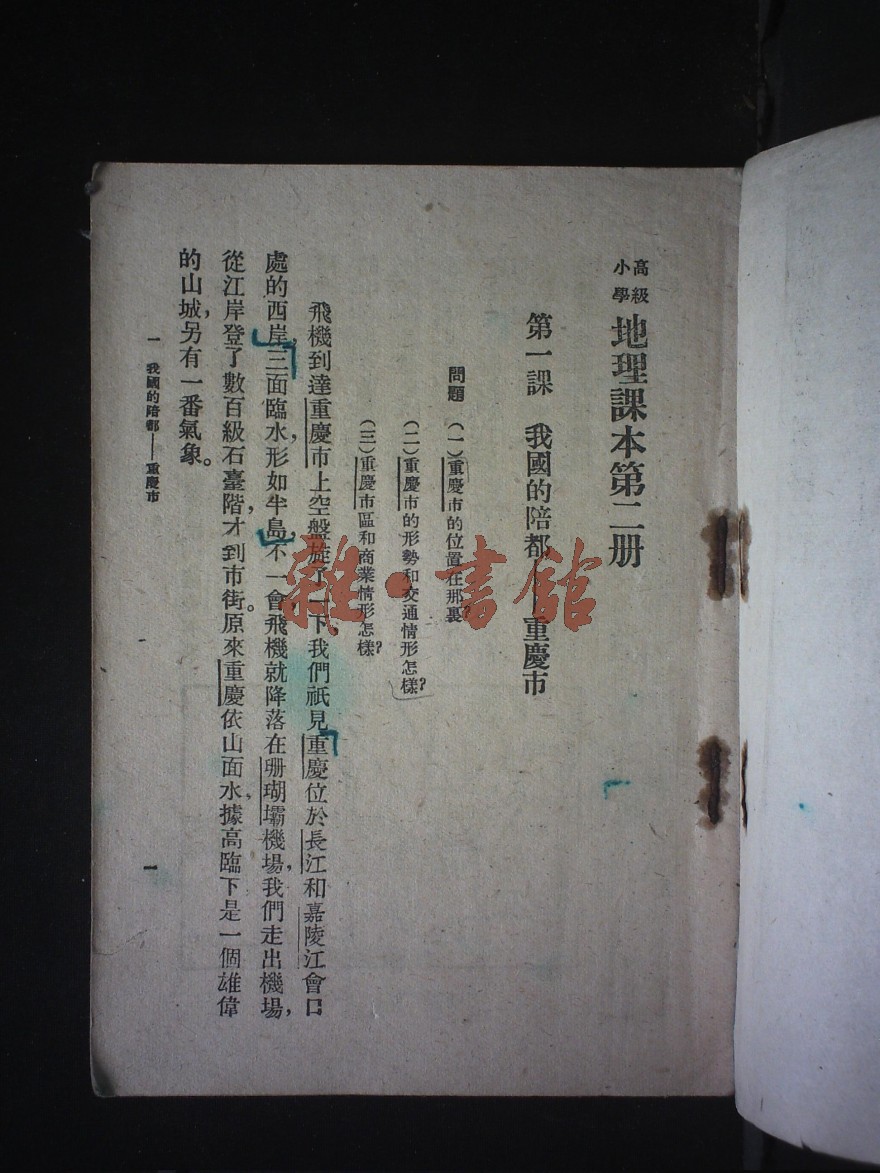 高級
小學
地理課本第二册
第一課　我國的陪都——重慶市
問題　(一)重慶市的位置在那裏?
(二)重慶市的形勢和交通情形怎樣?
(三)重慶市區和商業情形怎樣?
飛機到達重慶市上空盤旋了一下,我們祇見重慶位於長江和嘉陵江會口
處的西岸,三面臨水,形如半島。不一會,飛機就降落在珊瑚壩機場,我們走出機場,
從江岸登了數百級石臺階,才到市街。原來重慶依山面水,據高臨下,是一個雄偉
的山城,另有一番氣象。
一　我國的陪都——重慶市
一
雜·書館